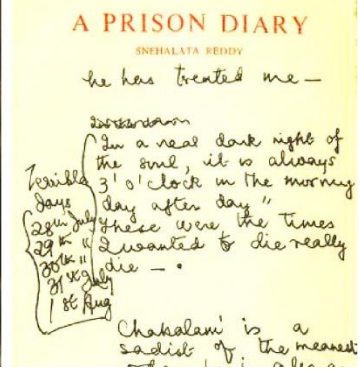 A PRISON DIARY
SNEHALATA REDDY
he has treated me —
"In a real dark night of
the soul, it is always
3 'o' clock in the morning
day after day"
These were the times
I wanted to die really
die — .
Terrible
days
28th July
29th "
30th "
31st July
1st Aug
Chakalam' is a
sadist of the meanest